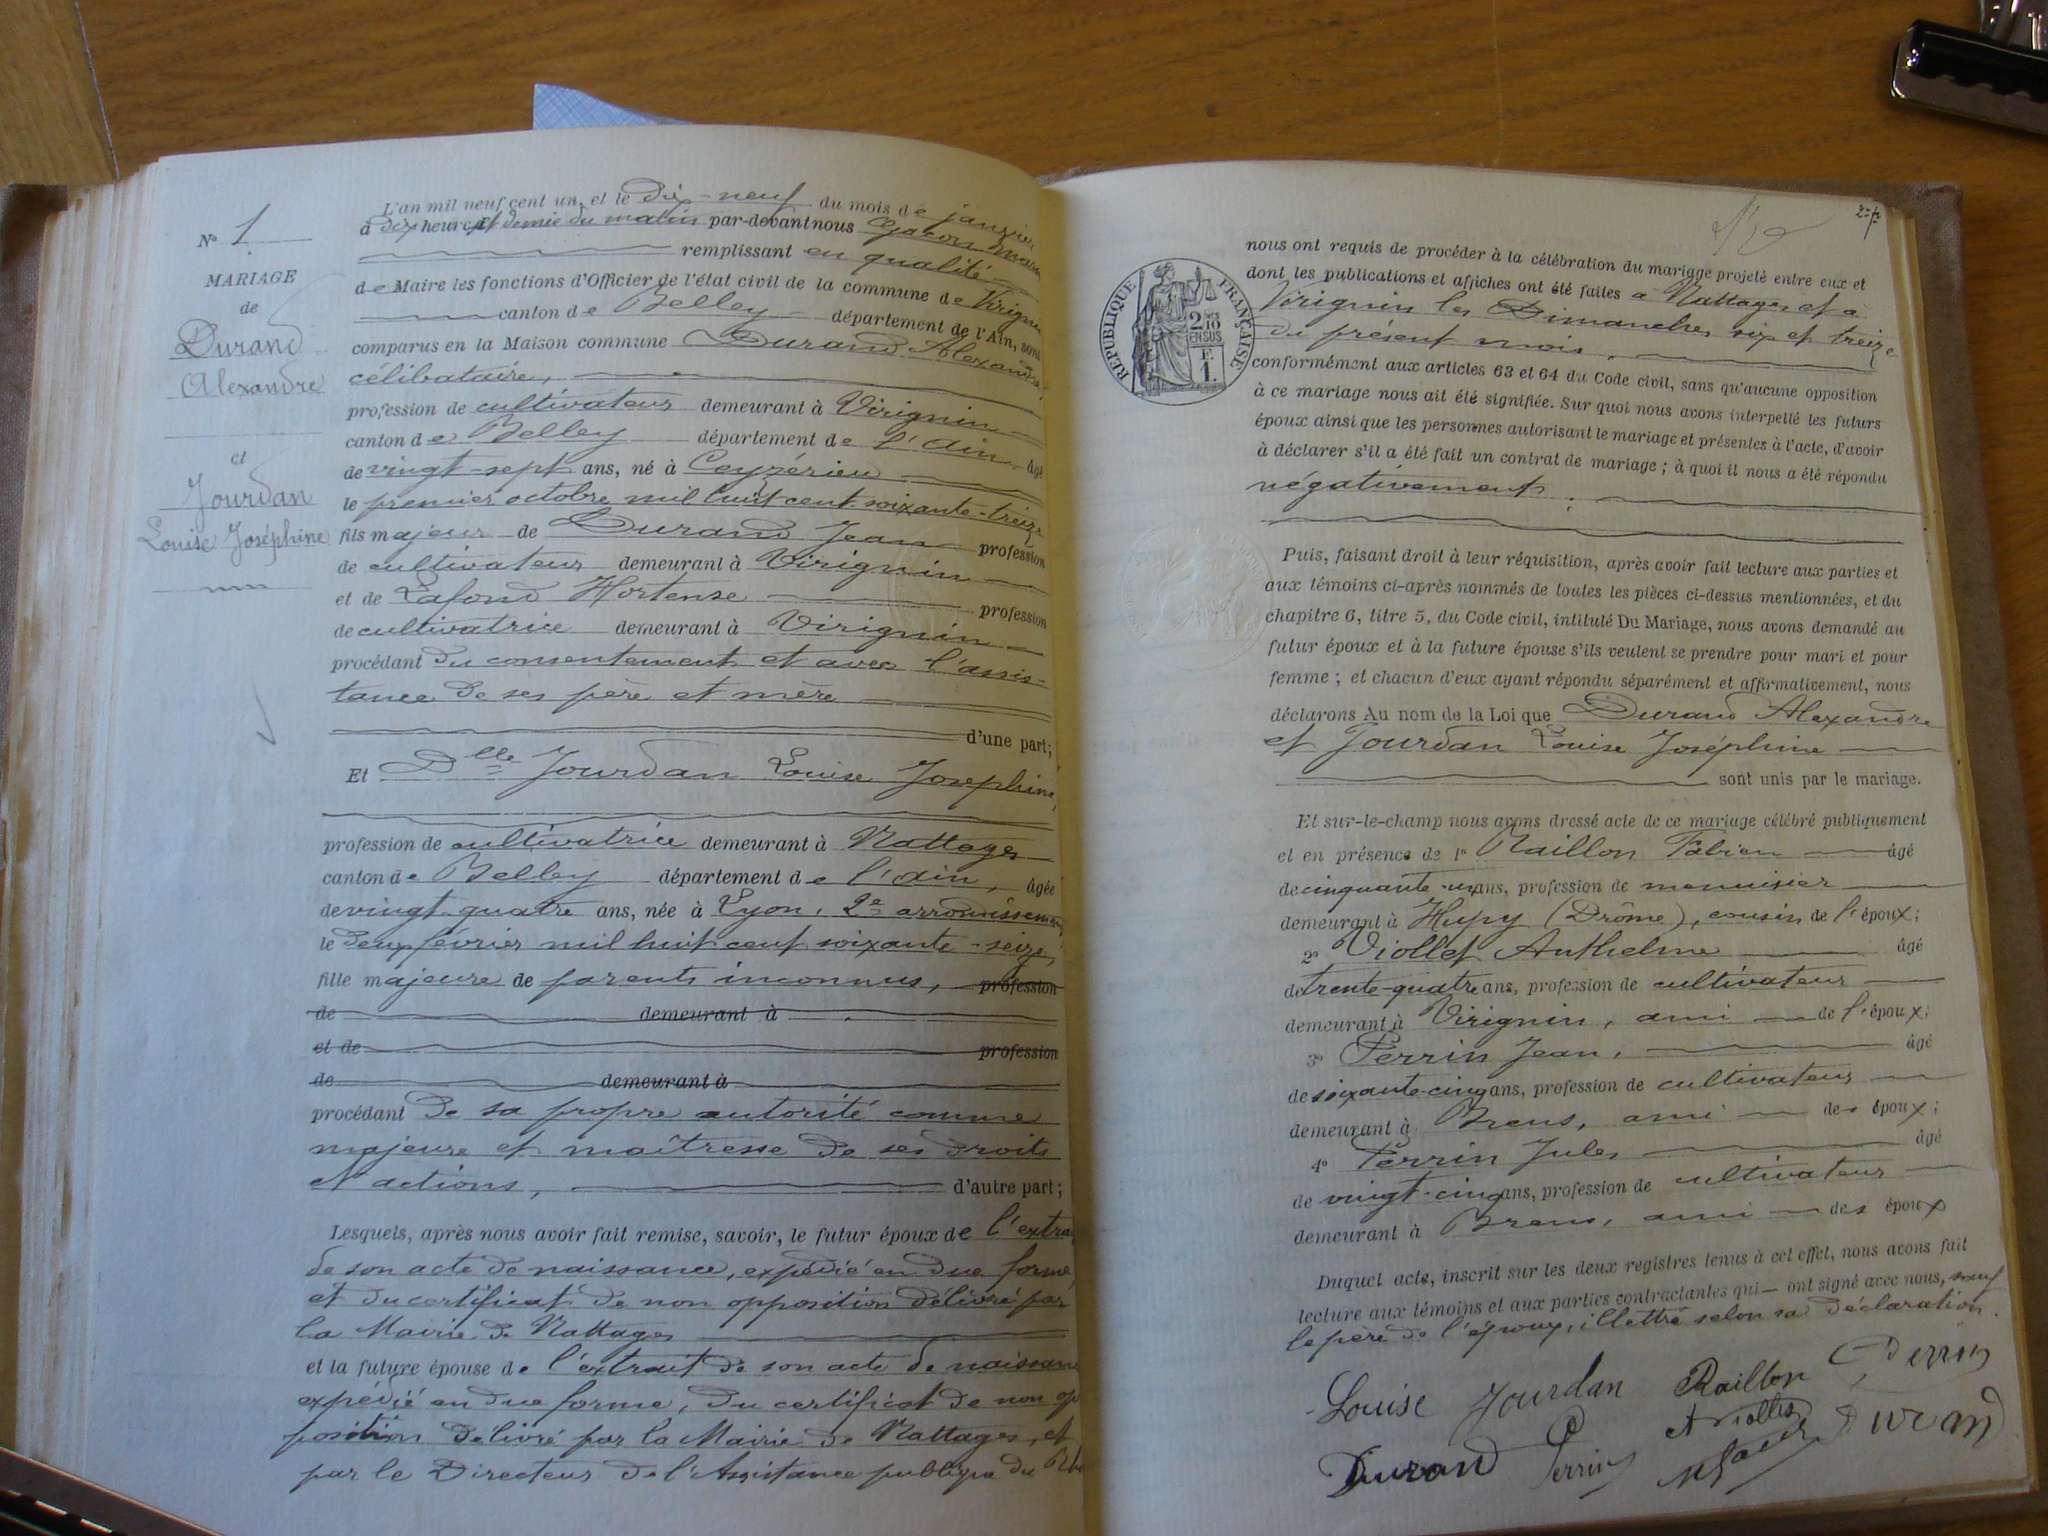 N° 1
MARIAGE
de
Durand
Alexandre
et
Jourdan
Louise Joséphine
L'an mil neuf cent un, et le dix-neuf du mois de janvier
à dix heures et demie du matin par-devant nous
remplissant en qualité
de Maire les fonctions d'Officier de l'état civil de la commune de Virignin
canton de Belley département de l'Ain, sont
comparus en la Maison commune Durand Alexandre,
célibataire,
profession de cultivateur demeurant à Virignin
canton de Belley département de l'Ain, âgé
de vingt-sept ans, né à Ceyzérieu
le premier octobre mil huit cent soixante-treize
fils majeur de Durand Jean profession
de cultivateur demeurant à Virignin
et de Lafond Hortense profession
de cultivatrice demeurant à Virignin
procédant du consentement et avec l'assis-
tance de ses père et mère
d'une part;
Et Dlle Jourdan Louise Josephine,
profession de cultivatrice demeurant à Nattages
canton de Belley département de l'Ain, âgée
de vingt-quatre ans, née à Lyon, 2e arrondissement
le deux février mil huit cent soixante-seize,
fille majeure de parents inconnus, profession
de demeurant à
et de profession
de demeurant à
procédant de sa propre autorité comme
majeure et maîtresse de ses droits
et actions, d'autre part;
Lesquels, après nous avoir fait remise, savoir, le futur époux de l'extra
de son acte de naissance, expédié en due forme,
et du certificat de non opposition délivré par
la Mairie de Nattages
et la future épouse de l'extrait de son acte de naissance
expédié en due forme, du certificat de non op
position délivré par la Mairie de Nattages, et
par le Directeur de l'Assistance publique du Rhô
2
RÉPUBLIQUE FRANÇAISE
2/10
EN SUS
F.
1.
nous ont requis de procéder à la célébration du mariage projeté entre eux et
dont les publications et affiches ont été faites à Nattages et à
Virignin les Dimanches six et treize
du présent mois,
conformément aux articles 63 et 64 du Code civil, sans qu'aucune opposition
à ce mariage nous ait été signifiée. Sur quoi nous avons interpellé les futurs
époux ainsi que les personnes autorisant le mariage et présentes à l'acte, d'avoir
à déclarer s'il a été fait un contrat de mariage ; à quoi il nous a été répondu
négativement.
Puis, faisant droit à leur réquisition, après avoir fait lecture aux parties et
aux témoins ci-après nommés de toutes les pièces ci-dessus mentionnées, et du
chapitre 6, titre 5, du Code civil, intitulé Du Mariage, nous avons demandé au
futur époux et à la future épouse s'ils veulent se prendre pour mari et pour
femme ; et chacun d'eux ayant répondu séparément et affirmativement, nous
déclarons Au nom de la Loi que Durand Alexandre
et Jourdan Louise Joséphine
sont unis par le mariage.
Et sur-le-champ nous avons dressé acte de ce mariage célébré publiquement
et en présence de 1° Raillon Fabien âgé
de cinquante-un ans, profession de menuisier
demeurant à (Drôme), cousin de l'époux;
2° Viollet Anthelme âgé
de trente-quatre ans, profession de cultivateur
demeurant à Virignin, ami de l'époux;
3° Perrin Jean, âgé
de soixante-cinq ans, profession de cultivateur
demeurant à Brens, ami des époux;
4° Perrin Jules âgé
de vingt-cinq ans, profession de cultivateur
demeurant à Brens, ami des époux
Duquel acte, inscrit sur les deux registres tenus à cet effet, nous avons fait
lecture aux témoins et aux parties contractantes qui ont signé avec nous, sauf
le père de l'époux, illettré selon sa déclaration.
Louise Jourdan Raillon Perrin
Durand Perrin A Viollet Durand